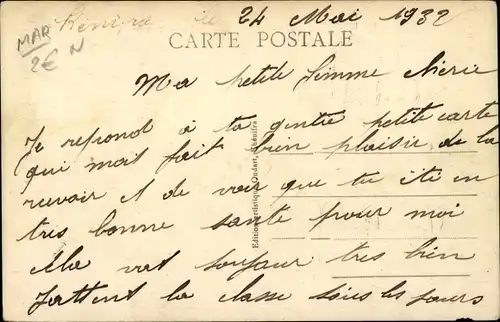 Kénitra le 24 Mai 1932
MAR
2€ N
CARTE POSTALE
Ma petite femme chérie
Je repond a ta gentie petite carte
qui mait fait bien plaisir de la
recevoir et de voir que tu iti en
tres bonne sante pour moi
Ma vat toujour tres bien
Jattent la classe sous les jours
Edition Artistique